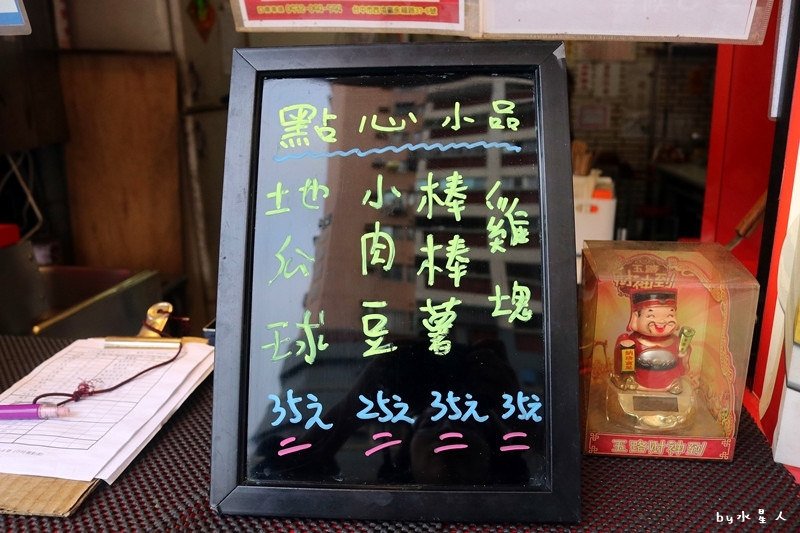 點心小品
雞塊
棒棒薯
小肉豆
地公球
35元
25元
35元
35元
五路財神到
五路財神到
by水星人